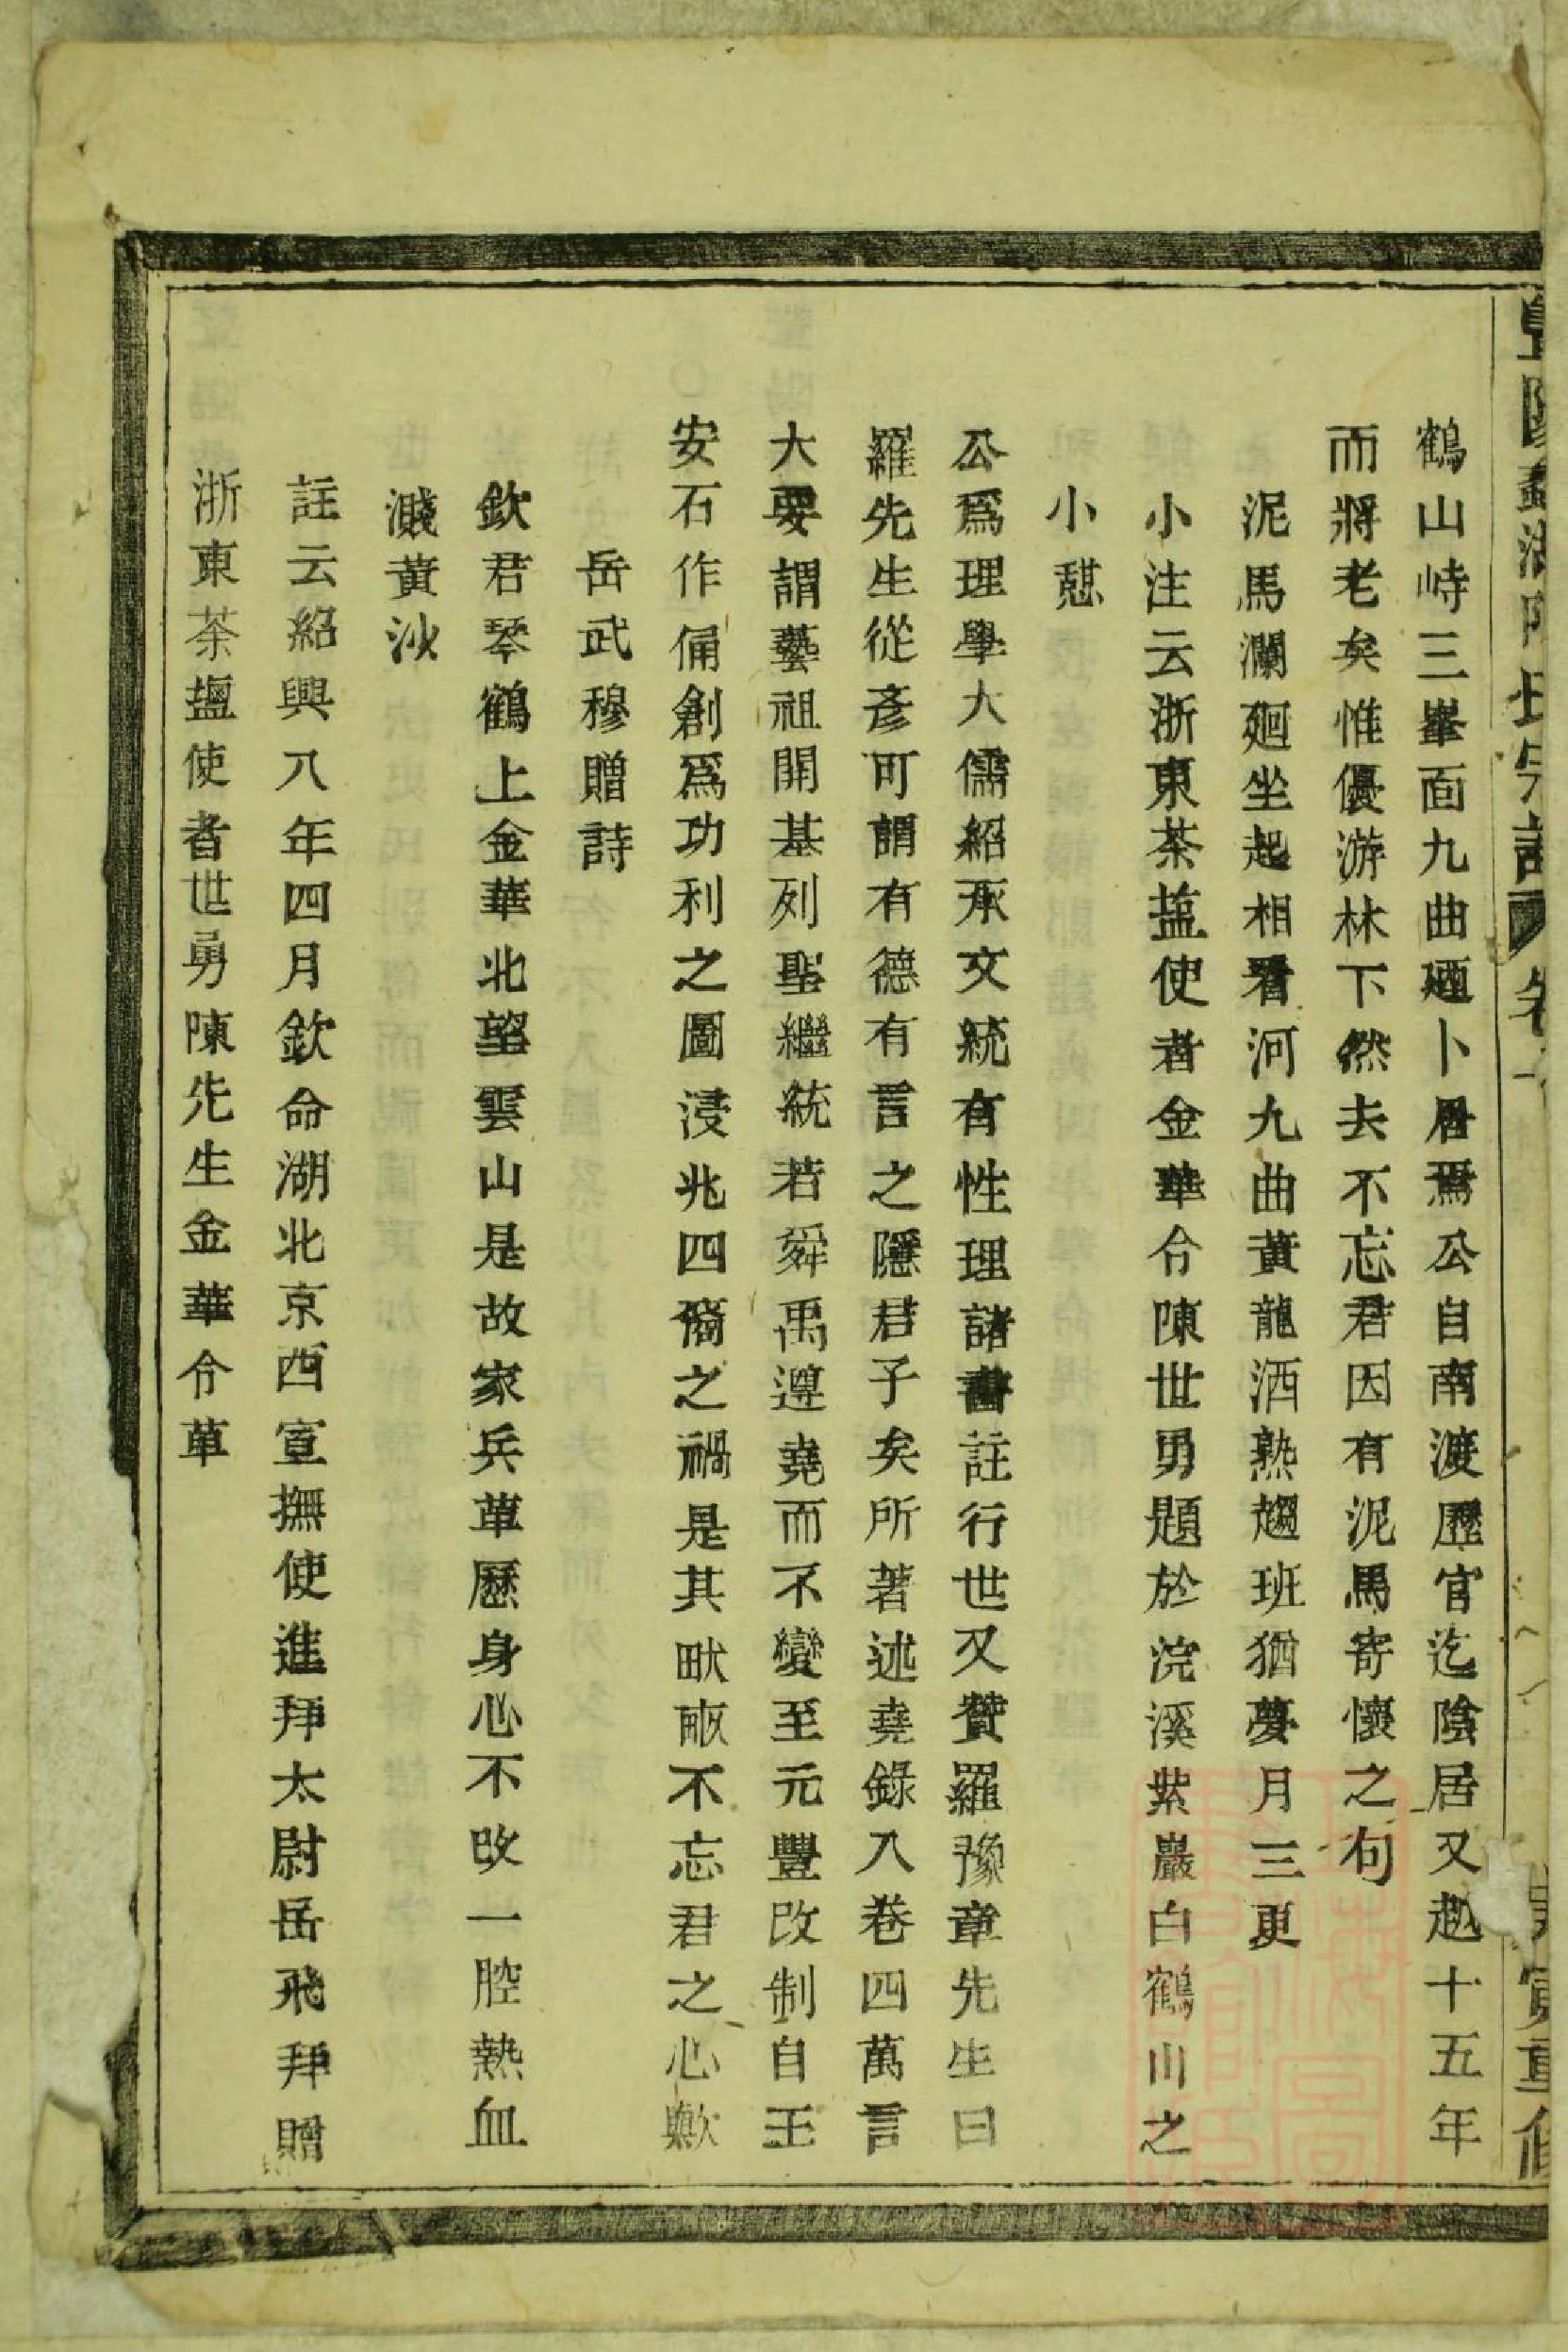 氏宗譜 卷
重修
鶴山峙三峯面九曲廼卜居焉公自南渡歷官迄陰居又越十五年
而將老矣惟優游林下然去不忘君因有泥馬寄懷之句
泥馬瀾廻坐起相看河九曲黃龍洒熟趨班猶夢月三更
小注云浙東茶塩使者金華令陳世勇題於浣溪紫巖白鶴川之
小憇
公爲理學大儒紹承文統有性理諸書註行世又贊羅豫章先生曰
羅先生從彥可謂有德有言之隱君子矣所著述堯錄入卷四萬言
大要謂藝祖開基列聖繼統若舜禹遵堯而不變至元豐改制自王
安石作俑創爲功利之圖浸兆四裔之禍是其畎畝不忘君之心歟
岳武穆贈詩
欽君琴鶴上金華北望雲山是故家兵革歷身心不改一腔熱血
濺黃沙
註云紹興八年四月欽命湖北京西宣撫使進拜太尉岳飛拜贈
浙東茶塩使者世勇陳先生金華令草